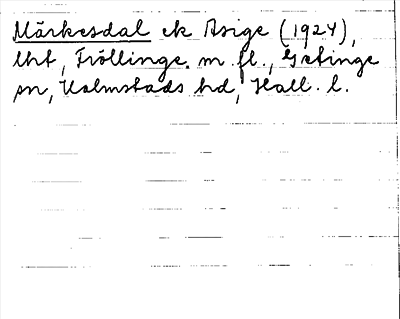 Märkesdal ek Asige (1924),
lht, Fröllinge m.fl., Getinge
sn, Halmstads hd, Hall. l.